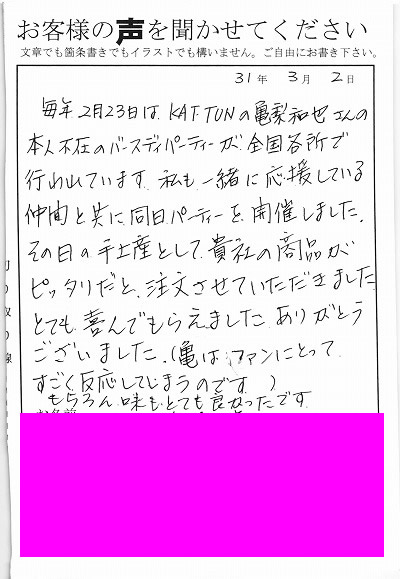 お客様の声を聞かせてください
文章でも箇条書きでもイラストでも構いません。ご自由にお書き下さい。
31年 3月 2日
毎年2月23日は、KAT TUNの亀梨和也さんの
本人不在のバースディパーティーが、全国各所で
行われています。私も、一緒に応援している
仲間と共に、同日パーティーを、開催しました。
その日の手土産として、貴社の商品が
ピッタリだと、注文させていただきました
とても、喜んでもらえました。ありがとう
ございました。(亀は、ファンにとって
すごく反応してしまうのです。)
もちろん、味も、とても良かったです。